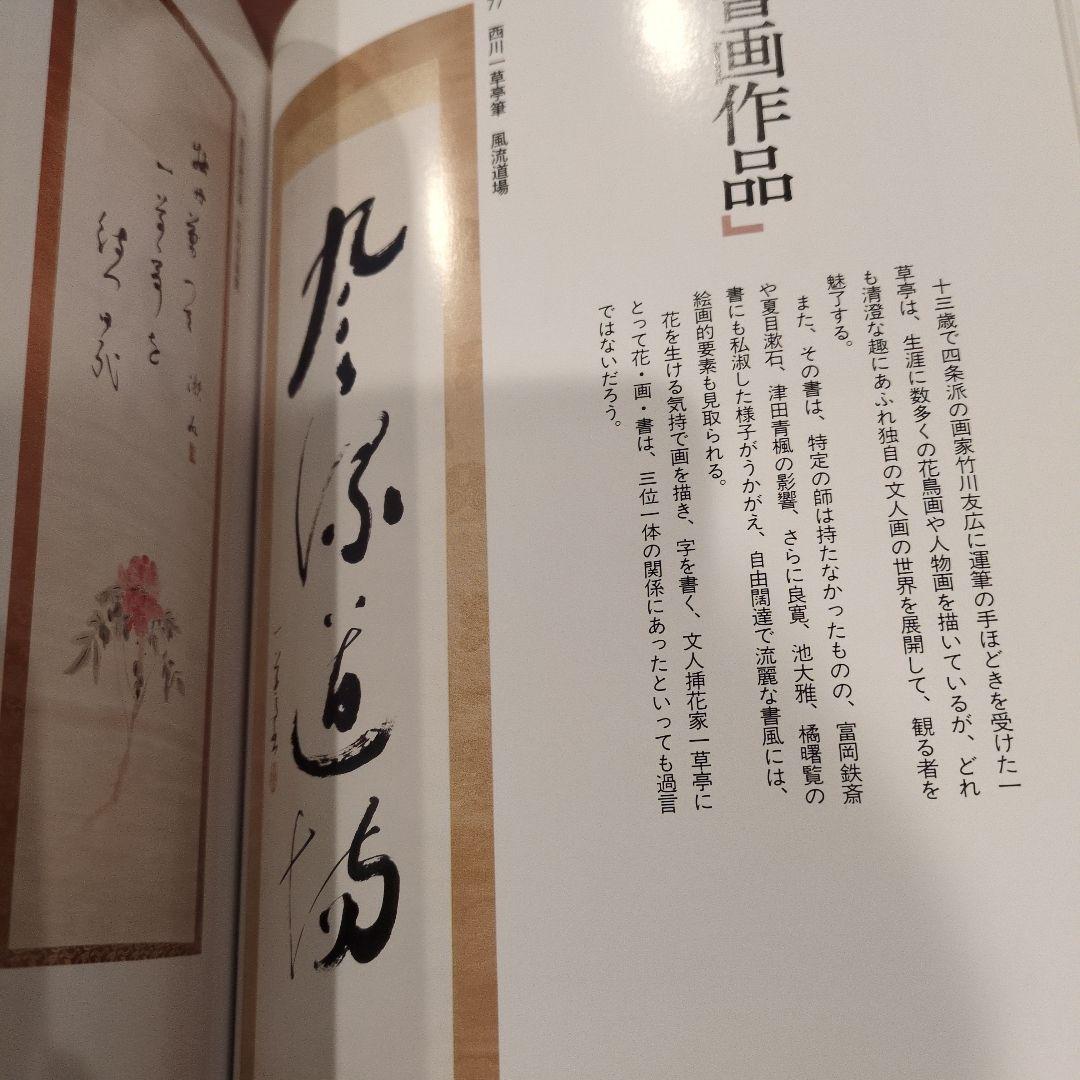 書画作品」
十三歳で四条派の画家竹川友広に運筆の手ほどきを受けた一
草亭は、生涯に数多くの花鳥画や人物画を描いているが、どれ
も清澄な趣にあふれ独自の文人画の世界を展開して、観る者を
魅了する。
また、その書は、特定の師は持たなかったものの、富岡鉄斎
や夏目漱石、津田青楓の影響、さらに良寛、池大雅、橘曙覧の
書にも私淑した様子がうかがえ、自由闊達で流麗な書風には、
絵画的要素も見取られる。
花を生ける気持で画を描き、字を書く、文人挿花家一草亭に
とって花・画・書は、三位一体の関係にあったといっても過言
ではないだろう。
77 西川一草亭筆 風流道場
風流道場